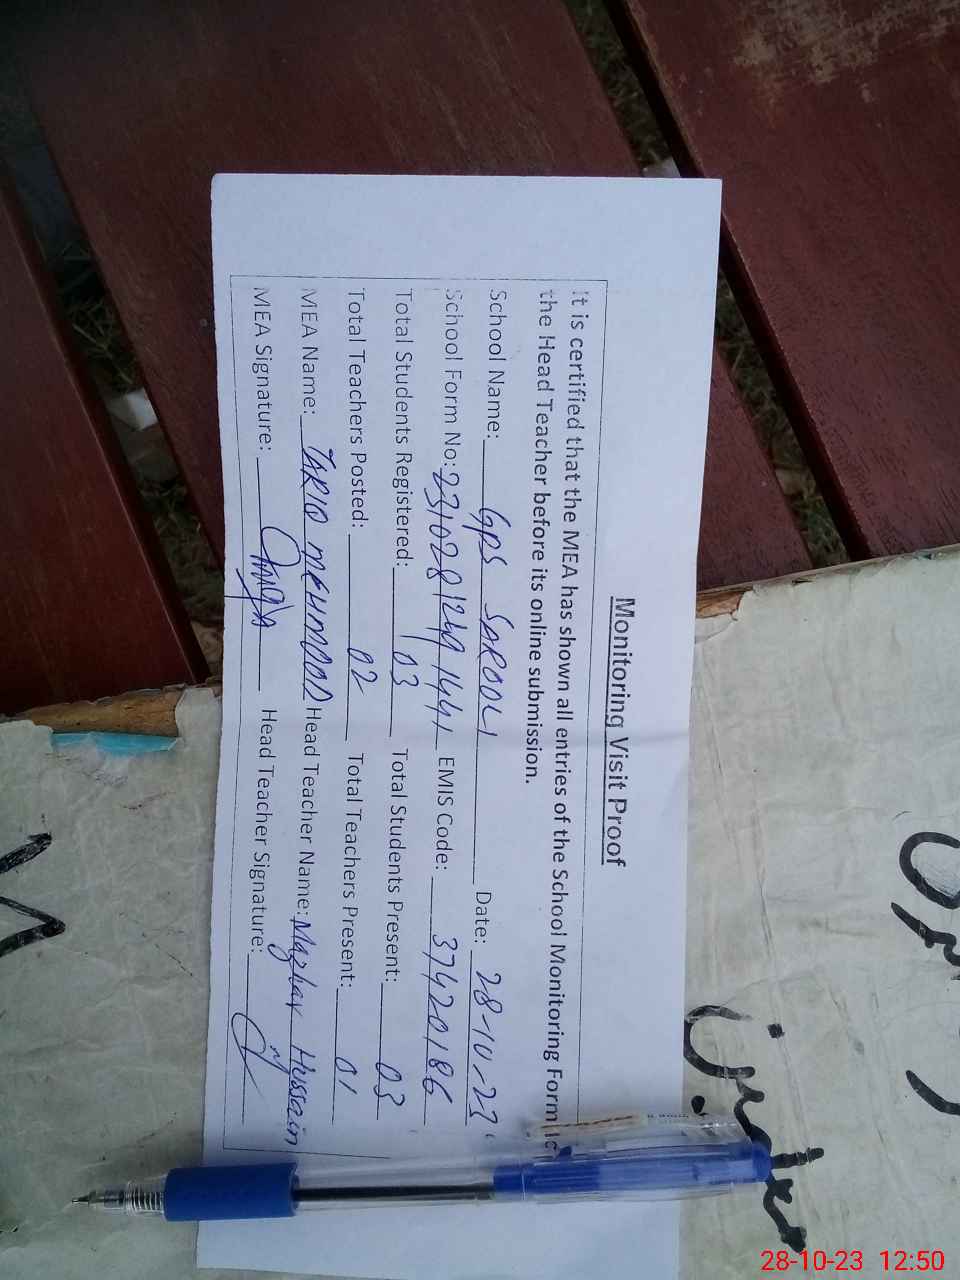 Monitoring Visit Proof
It is certified that the MEA has shown all entries of the School Monitoring Form
the Head Teacher before its online submission.
School Name: GPS SAROOLI Date: 28-10-23
School Form No: 231028124914441 EMIS Code: 37420186
Total Students Registered: 03 Total Students Present: 03
Total Teachers Posted: 02 Total Teachers Present: 01
MEA Name: TARIQ MEHMOOD Head Teacher Name: Mazhar Hussain
MEA Signature: Head Teacher Signature:
28-10-23 12:50